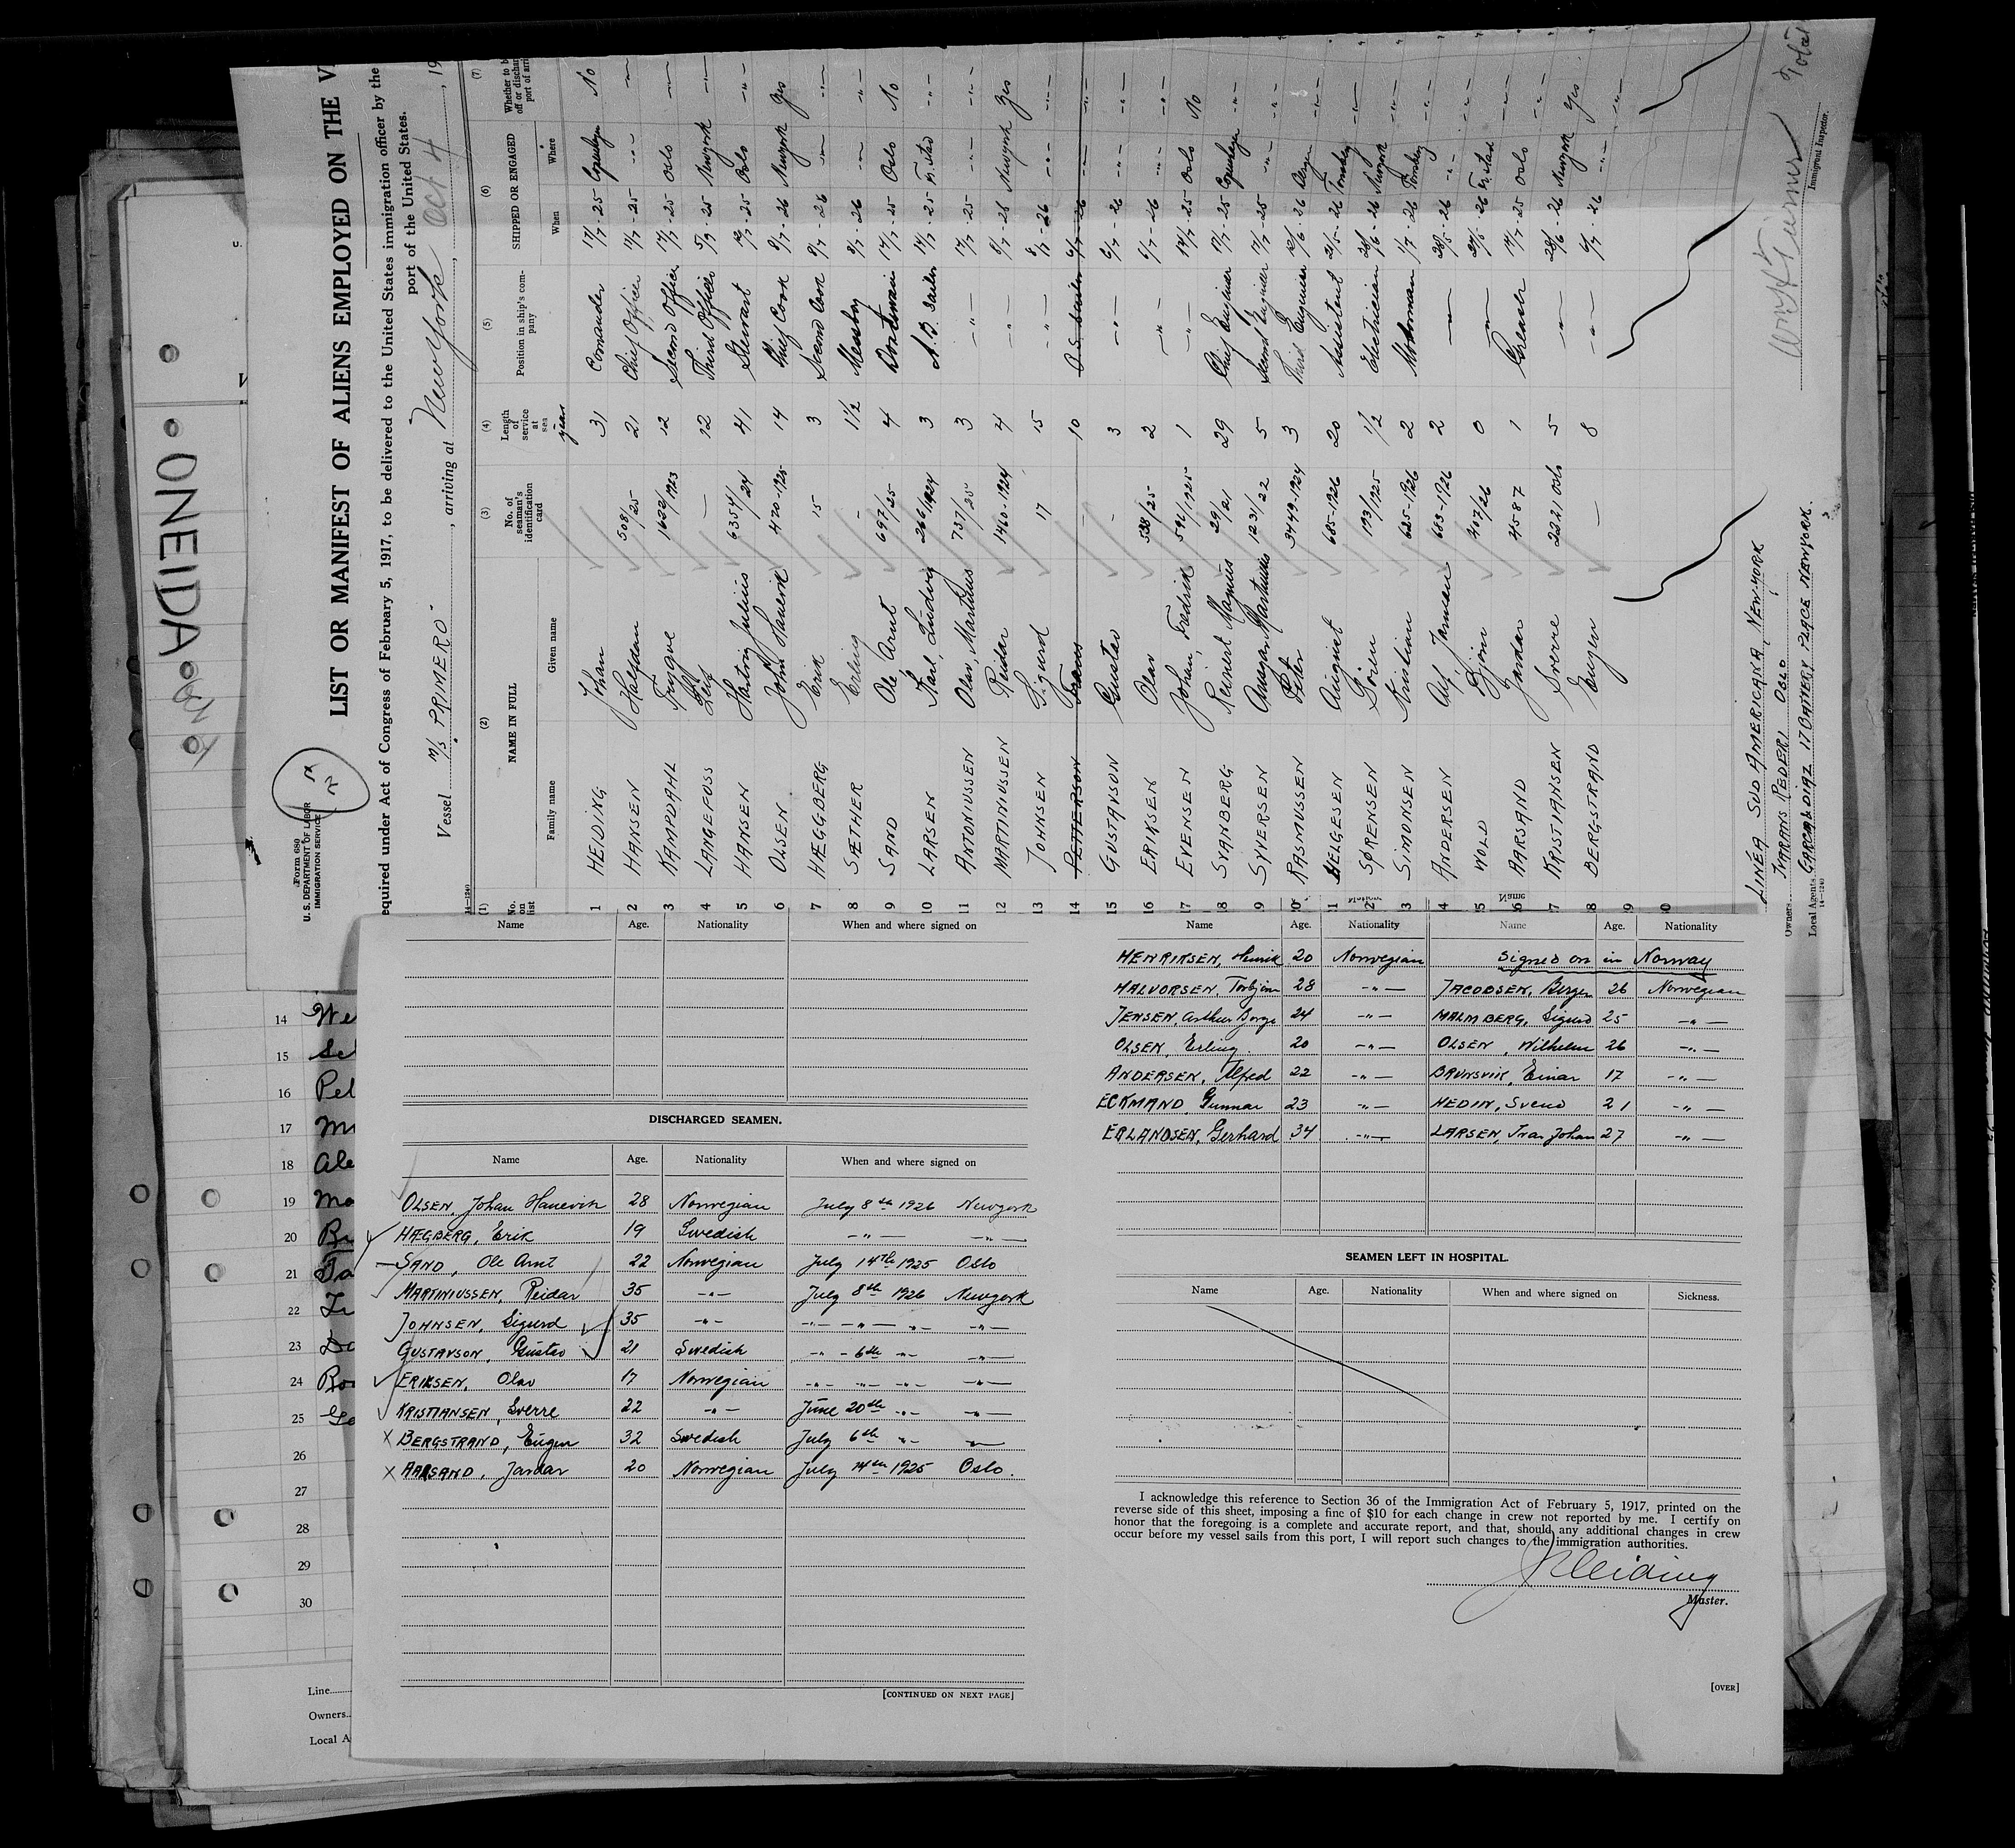 Form 680
U. S. DEPARTMENT OF LABOR
IMMIGRATION SERVICE
LIST OR MANIFEST OF ALIENS EMPLOYED ON THE
equired under Act of Congress of February 5, 1917, to be delivered to the United States immigration officer by the
port of the United States.
Vessel M/S PRIMERO, arriving at New York Oct 4, 19
14—1240
(1) (2) (3) (4) (5) (6) (7)
No. on list NAME IN FULL No. of seaman's identification card Length of service at sea Position in ship's company SHIPPED OR ENGAGED Whether to b off or dischar port of arri
Family name Given name years When Where
1 HEIDING Johan 31 Comander 17/7-25 Copenhagen No
2 HANSEN Halfdan 508/25 21 Chief Officer 17/7-25 -"-
3 KAMPDAHL Trygve 1632/1923 12 Second Officer 17/7-25 Oslo -"-
4 LANGEFOSS Leif — 12 Third Officer 5/9-25 Newyork -"-
5 HANSEN Hartvig Julius 6354/24 41 Steward 14/7-25 Oslo -"-
6 OLSEN Johan Hanevik 470-1925 14 Chief Cook 8/7-26 Newyork Yes
7 HÆGGBERG Erik 15 3 Second Cook 8/7-26 -"- -"-
8 SÆTHER Erling - 1½ Messboy 8/7-26 -"- -"-
9 SAND Ole Arnt 697/25 4 17/7-25 Oslo No
10 LARSEN Karl, Ludvig 266/1924 3 A.B. Sailor 14/7-25 Fr.stad -"-
11 ANTONIUSSEN Olav, Martinus 737/25 3 -"- 17/7-25 -"- -"-
12 MARTINIUSSEN Reidar 1460-1924 4 -"- 8/7-26 Newyork Yes
13 JOHNSEN Sigurd 17 15 -"- 8/7-26 -"- -"-
14 PETTERSON Frans 10 O.S. Sailor 6/7-26 -"- -"-
15 GUSTAVSON Gustav - 3 -"- 6/7-26 -"- -"-
16 ERIKSEN Olav 538/25 2 -"- 6/7-26 -"- -"-
17 EVENSEN Johan, Fredrik 591/1925 1 -"- 14/7-25 Oslo No
18 SVANBERG Reinert Magnus 29/21 29 Chief Engineer 17/7-25 Copenhagen -"-
9 SYVERSEN Ansgar Martinius 1231/22 5 Second Engineer 17/7-25 -"- -"-
20 RASMUSSEN Peter 3449-1924 3 Third Engineer 12/6 26 Bergen -"-
1 HELGESEN August 685-1926 20 Assistent 21/5-26 Tonsberg -"-
2 SØRENSEN Sören 193/1925 ½ Electrician 28/6-26 Newyork -"-
3 SIMONSEN Kristian 625-1926 2 Motorman 1/7-26 Tonsberg -"-
4 ANDERSEN Alf Jansen 683-1926 2 -"- 20/5-26 -"- -"-
5 WOLD Bjön 407/26 0 -"- 27/5-26 Fr.stad -"-
6 AARSAND Jardar 4587 1 Greaser 14/7-25 Oslo -"-
7 KRISTIANSEN Sverre 2221 Oslo 5 -"- 28/6-26 Newyork Yes
8 BERGSTRAND Eugen — 8 -"- 6/7-26 -"- -"-
9
30
LINEA SUD AMERICANA, NEW-YORK
Owners IVARANS REDERI OSLO
Local Agents GARCIA & DIAZ 17 BATTERY PLACE NEWYORK.
14—1240
Immigrant Inspector.
Total
ONEIDA
14 We
15 Sch
16 Pet
17 Mu
18 Ale
19 Mo
20 Br
21
22
23
24 Ro
25
26
27
28
29
30
Line
Owners
Local A
Name Age. Nationality When and where signed on
DISCHARGED SEAMEN.
Name Age. Nationality When and where signed on
OLSEN, Johan Hanevik 28 Norwegian July 8th 1926 Newyork
HÆGBERG, Erik 19 Swedish -"- -"-
SAND, Ole Arnt 22 Norwegian July 14th 1925 Oslo
MARTINIUSSEN, Reidar 35 -"- July 8th 1926 Newyork
JOHNSEN, Sigurd 35 -"- -"- -"- -"- -"-
GUSTAVSON, Gustav 21 Swedish -"- 6th -"- -"-
ERIKSEN, Olav 17 Norwegian -"- -"- -"- -"-
KRISTIANSEN, Sverre 22 -"- June 20th -"- -"-
X BERGSTRAND, Eugen 32 Swedish July 6th -"- -"-
X AARSAND, Jardar 20 Norwegian July 14th 1925 Oslo.
[CONTINUED ON NEXT PAGE]
Name Age. Nationality Name Age. Nationality
HENRIKSEN, Henrik 20 Norwegian Signed on in Norway
HALVORSEN, Torbjörn 28 -"- JACOBSEN, Birger 26 Norwegian
JENSEN, Arthur Borge 24 -"- MALMBERG, Sigurd 25 -"-
OLSEN, Erling. 20 -"- OLSEN, Wilhelm 26 -"-
ANDERSEN, Alfred 22 -"- BRUNSVIK, Einar 17 -"-
ECKMAND, Gunnar 23 -"- HEDIN, Svend 21 -"-
ERLANDSEN, Gerhard 34 -"- LARSEN, Ivar Johan 27 -"-
SEAMEN LEFT IN HOSPITAL.
Name Age. Nationality When and where signed on Sickness.
I acknowledge this reference to Section 36 of the Immigration Act of February 5, 1917, printed on the
reverse side of this sheet, imposing a fine of $10 for each change in crew not reported by me. I certify on
honor that the foregoing is a complete and accurate report, and that, should any additional changes in crew
occur before my vessel sails from this port, I will report such changes to the immigration authorities.
J Heiding
Master.
[OVER]